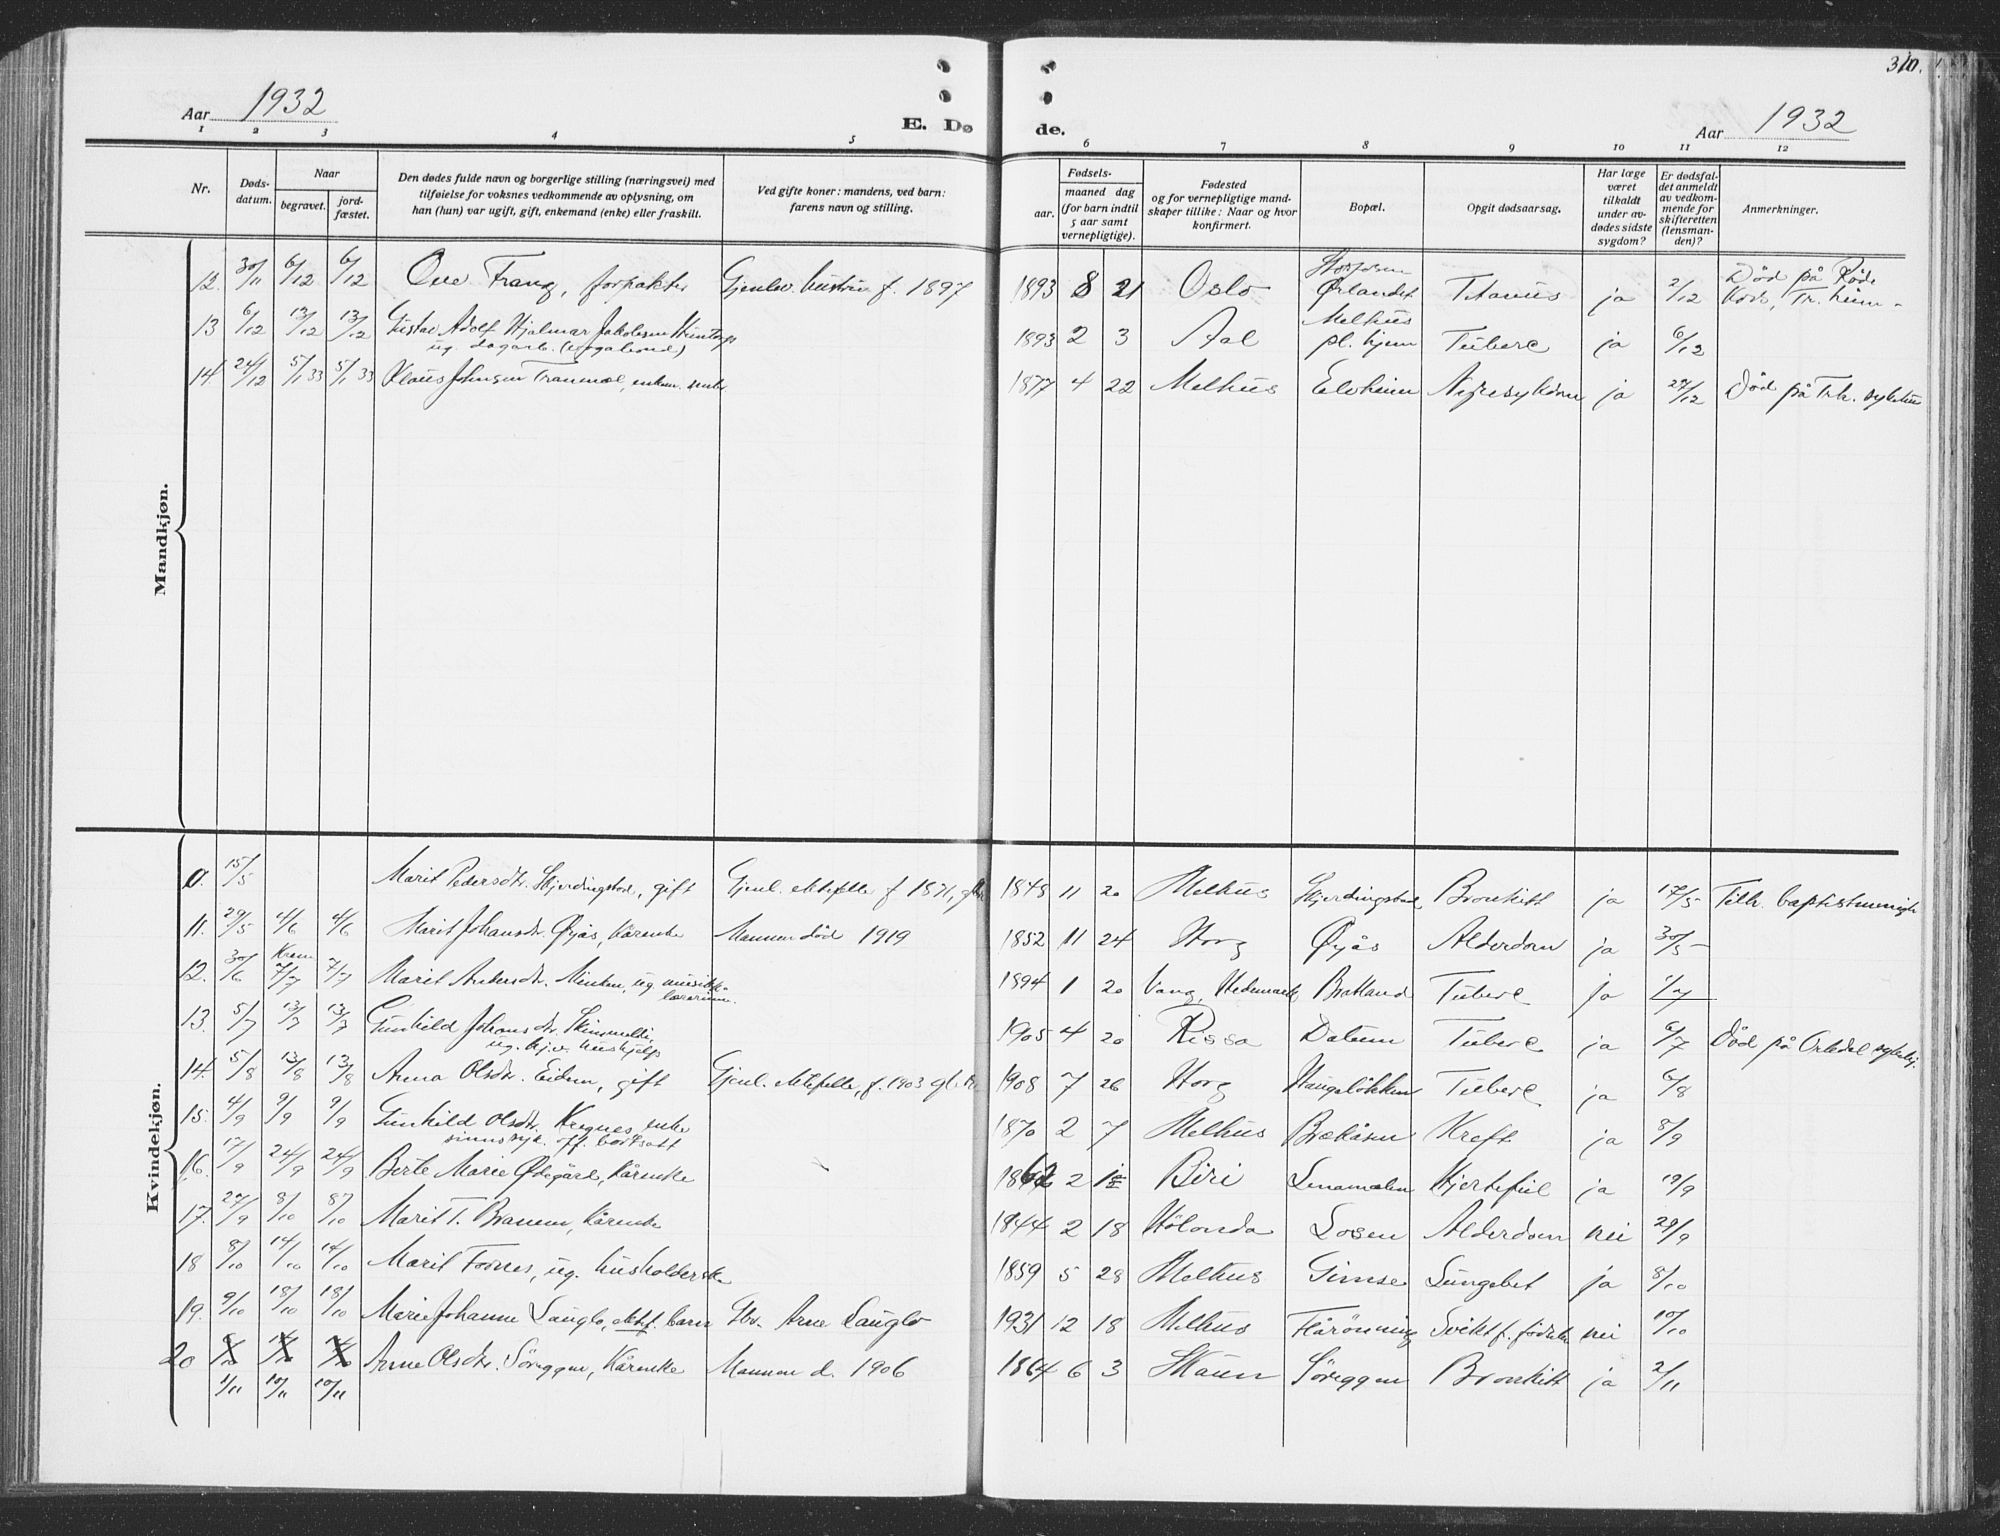 310.
Aar 1932
E. Dø
de.
Aar 1932
1 2 3 4 5 6 7 8 9 10 11 12
Nr.
Døds-
datum.
Naar
begravet.
jord-
fæstet.
Den dødes fulde navn og borgerlige stilling (næringsvei) med
tilføielse for voksnes vedkommende av oplysning, om
han (hun) var ugift, gift, enkemand (enke) eller fraskilt.
Ved gifte koner: mandens, ved barn:
farens navn og stilling.
Fødsels-
aar.
maaned dag
(for barn indtil
5 aar samt
vernepligtige).
Fødested
og for vernepligtige mand-
skaper tillike: Naar og hvor
konfirmert.
Bopæl.
Opgit dødsaarsag.
Har læge
været
tilkaldt
under av-
dødes sidste
sygdom?
Er dødsfal-
det anmeldt
av vedkom-
mende for
skifteretten
(lensman-
den)?
Anmerkninger.
Mandkjøn.
12. 30/11 6/12 6/12 Ove Frang, forpakter Gjenlev. hustru f. 1897 1893 8 21 Oslo Ørlandet Tetanus ja 2/12 Død på Røde
Kors, Tr.heim
13 6/12 13/12 13/12 Gustav Adolf Hjalmar Jakobsen
ug. dagarb. 1893 2 3 Aal Melhus
pl.hjem Tuberc ja 6/12
14. 24/12 5/1 33 5/1 33 Klaus Johnsen Tranmæl, enkem. 1877 4 22 Melhus Elvheim Nyresykdom ja 29/12 Død på Trh. sykehus
Kvindekjøn.
10. 15/5 Marit Pedersdtr. Skjerdingstad, gift Gjenl. ektefelle f 1871, 1848 11 20 Melhus Skjerdingstad Bronkitt ja 17/5 Tilh. baptistmenigh
11. 29/5 4/6 4/6 Marit Johansdr. Øyås, kårenke Mannen død 1919 1852 11 24 Horg Øyås Alderdom ja 30/5
12. 30/6 Krem 7/7 7/7 Marit Andersdtr. ug. musikk-
lærerinne. 1894 1 20 Vang, Hedemark Bratland Tuberc ja 1/7
13. 5/7 13/7 13/7 Gunhild Johansdr.
ug. hj.v. hushjelp 1905 4 20 Rissa Dalum Tuberc ja 6/7 Død på Orkedal sykehj.
14. 5/8 13/8 13/8 Anna Olsdtr. Eidem, gift Gjenl. ektefelle, f. 1903 1908 7 26 Horg Haugsløkken Tuberc ja 6/8
15. 4/9 9/9 9/9 Gunhild Olsdtr. Kregnes enke
sinnssyk. off. bortsatt 1870 2 7 Melhus Brekåsen Kreft ja 8/9
16. 17/9 24/9 24/9 Berte Marie Ødegård, kårenke 1862 2 Biri Lenamælen Hjertefeil ja 19/9
17. 29/9 8/10 8/10 Marit T. Branem, kårenke 1844 2 18 Hølonda Losen Alderdom nei 29/9
18 8/10 14/10 14/10 Marit Fornes, ug. husholderske 1859 5 28 Melhus Gimse Lungebet ja 8/10
19. 9/10 18/10 18/10 Marie Johanne Lauglo, ektef. barn Gbr. Arne Lauglo 1931 12 18 Melhus Flårønning Svekt f. fødsele nei 10/10
20 Anne Olsdtr. Søreggen, Kårenke Mannen d. 1906 1864 6 3 Skaun Søreggen Bronkitt ja 2/11
1/11 10/11 10/11